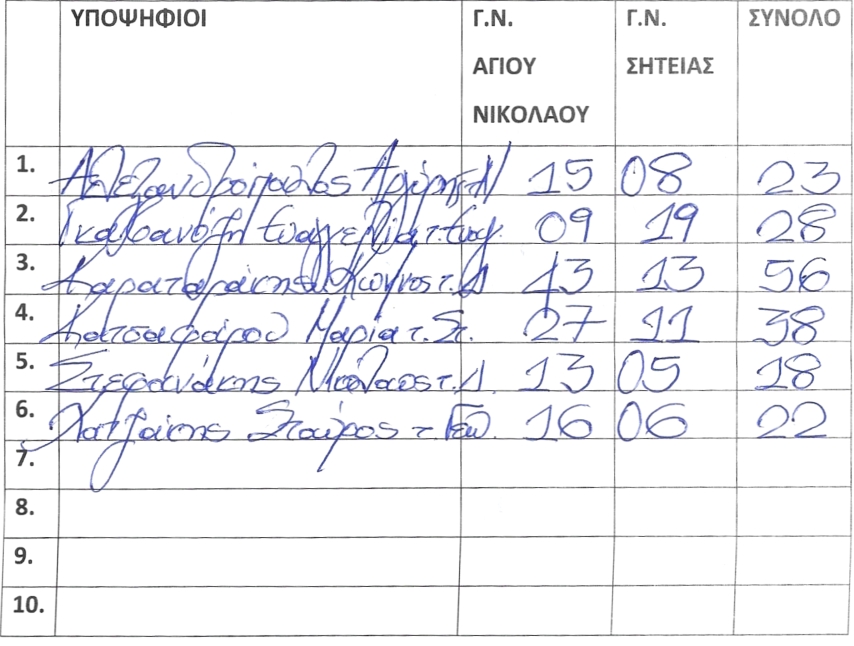 ΥΠΟΨΗΦΙΟΙ Γ.Ν. ΑΓΙΟΥ ΝΙΚΟΛΑΟΥ Γ.Ν. ΣΗΤΕΙΑΣ ΣΥΝΟΛΟ
1. Αλεξανδρόπουλος 15 08 23
2. Ευαγγελία τ. 09 19 28
3. Καραταράκης τ. 43 13 56
4. Κατσαφάρου Μαρία τ. Στ. 27 11 38
5. Στεφανάκης Νικόλαος τ. 13 05 18
6. Χατζάκης Σταύρος τ. Γεω. 16 06 22
7.
8.
9.
10.